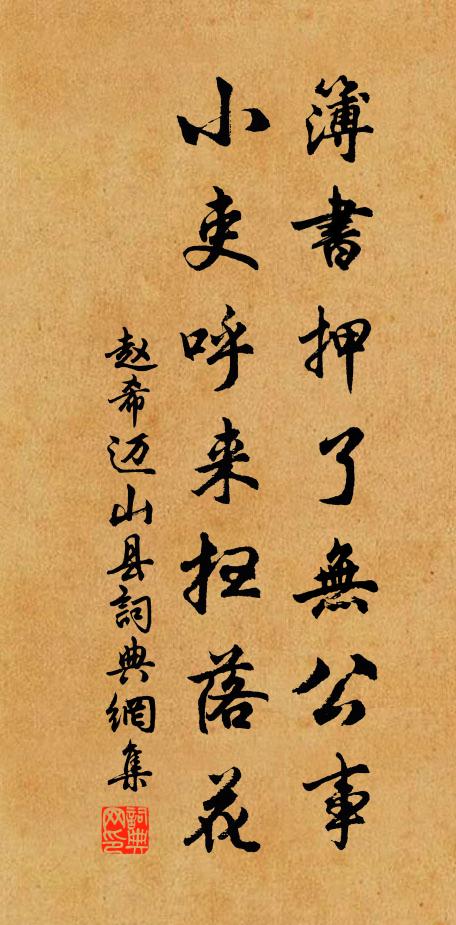 簿書押了無公事
小吏呼来扫落花
赵希迈山县詞典網集
詞典网印